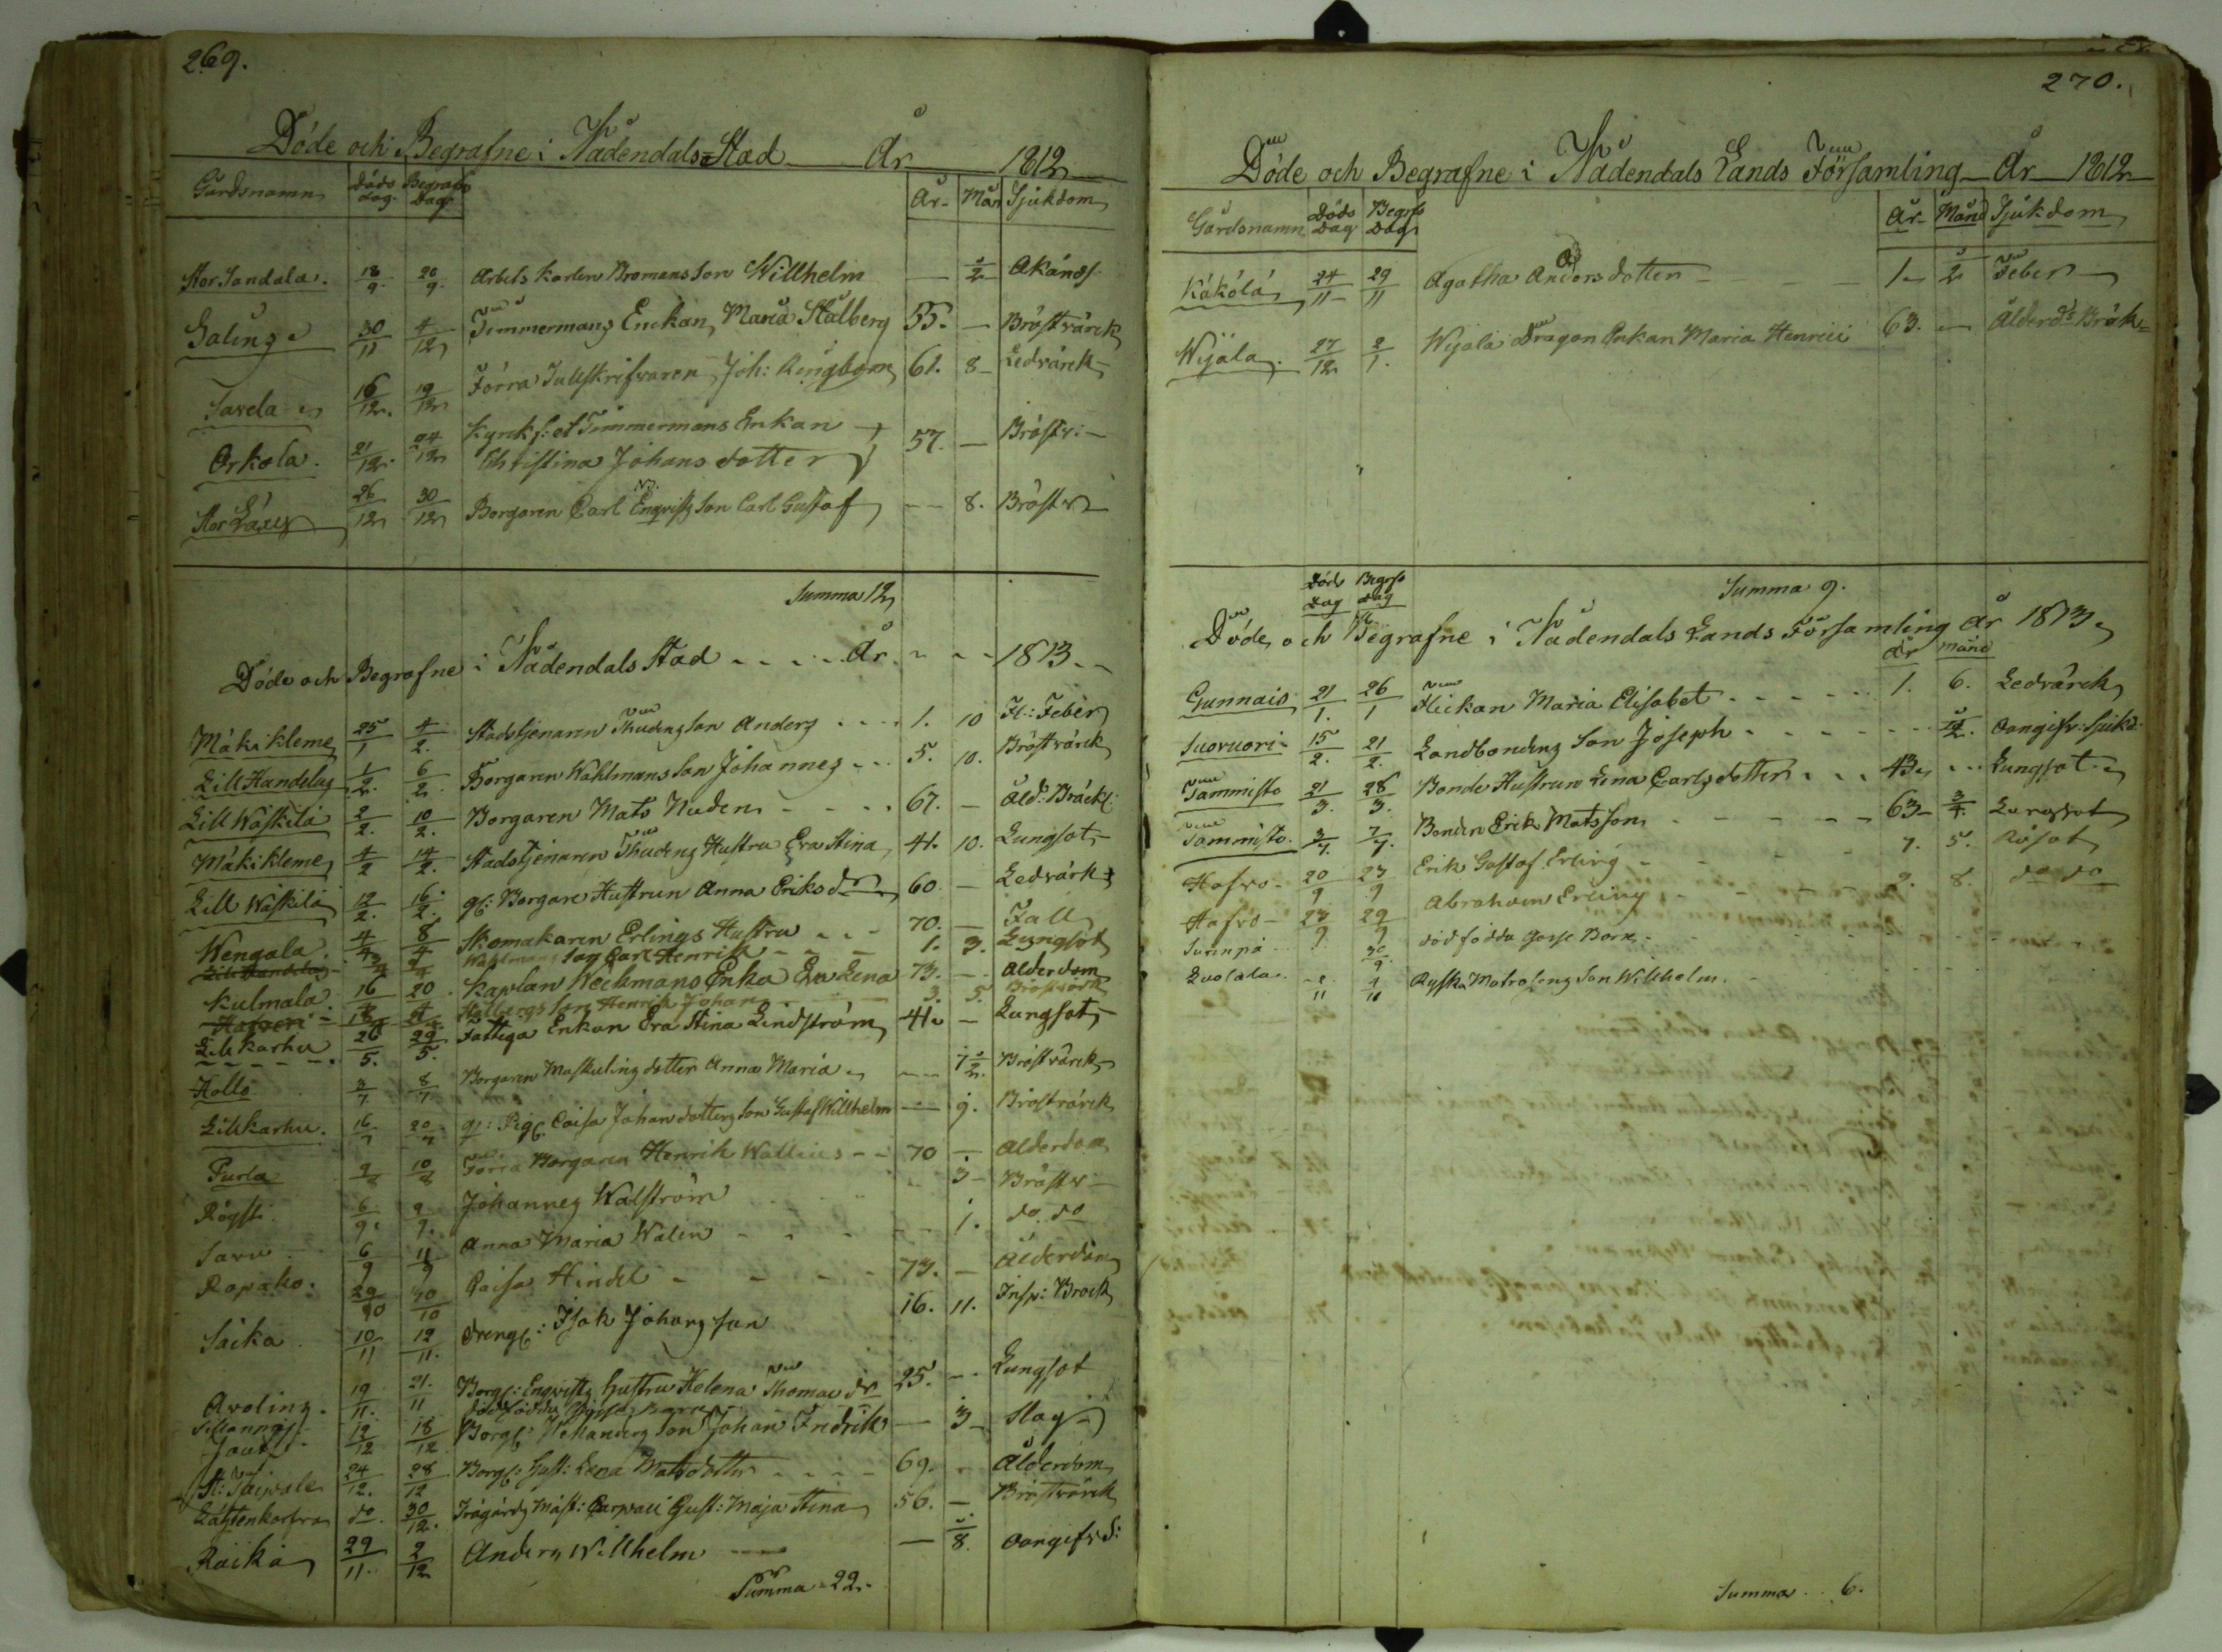 269.
Döde och Begrafne i Nådendals Stad År 1812
Gårdsnamn Döds dag. Begrafs Dag. År. Mån Sjukdom
Stor Sandala. 18/9. 20/9. Arbets Karlen Bromans Son Willhelm — 1/2
30/11 4/12 Timmermans Enckan, Maria Stålberg 55. — Bröstvärck
Tavela 16/12. 19/12 Förra Tullskrifvaren Joh: Ringbom 61. 8 Ledvärck
Arkola. 21/12. 24/12 Kyrck f: et Timmermans Enkan
Christina Johans dotter 57. — Bröstv:
26/12 30/12 Borgaren Carl Enqvists Son Carl Gustaf — 8. Bröstv
Summa 12
Döde och Begrafne i Nådendals Stad År 1813
Mäkikleme 25/1 4/2. Stadstjenaren Thudens Son Anders 1. 10 Fl: Feber
Lill Handelus 1/2. 6/2. Borgaren Wahlmans Son Johannes 5. 10. Bröstvärck
Lill Wäskilä 2/2. 10/2. Borgaren Mats Nuden 67. — Åld: Bräckl:
Mäkikleme 4/2 14/2. Stadstjenaren Thudens Hustru Eva Stina 41. 10. Lungsot
Lill Wäskilä 12/2. 16/2. gl: Borgare Hustrun Anna Eriksdr 60. — Ledvärck
Wengala. 4/4 8/4 Skomakaren Erlings Hustru 70. — Fall
Wahlmans Son Carl Henrik 1. 3. Lungsot
Kulmala. 16 20. Kaplan Weckmans Enka Eva Lena 73. — Ålderdom
Stålbergs Son Henrik Johan 3. 5. Bröstvärk
Lill Karhu 26/5. 29/5. Fattiga Enkan Eva Stina Lindström 41. — Lungsot
Hollo 3/7 8/7 Borgaren Maskulins dotter Anna Maria — 7 1/2. Bröstvärck
Lill Karhu. 16/7 20/7 gl: Pig: Caisa Johans dotters Son Gustaf Willhelm — 9. Bröstvärck
Purla 9/8 10/8 Förra Borgaren Henrik Wallius 70 — Ålderdom
Röysti 6/9. 9/9. Johannes Walström 3 Bröstv
Savu 6/9 11/9 Anna Maria Walin 1. do do
Ropako. 29/10 30/10 Caisa Hindel 73. — Ålderdom
Saika. 10/11 12/11. Dreng: Isak Johansson 16. 11. Insp: Brock
Avolins. 19/11. 21./11 Borg: Enqvists Hustru Helena Thomae dr 25. — Lungsot
dödfödda Gosse barn
12/12 18/12 Borg: Son Johan Fredrik — 3 Slag
24/12. 28/12 Borg: Hust: Lena Matsdotter 69. Ålderdom
do. 30/12. Trägårds Mäst: Carpaei Hust: Maja Stina 56. — Bröstvärck
Raikä 29/11. 2/12 Anders Willhelm — 8. oangifv:
Summa 22.
270.
Döde och Begrafne i Nådendals Lands Församling År 1812
Gårdsnamn Döds Dag Begrfs Dag År Mån Sjukdom
Käkölä 24/11 29/11 Agatha Anders dotter 1 1/2 Feber
Wijala. 27/12 2/1. Wijala Dragon Enkan Maria Henrici 63. — Ålderds Bräk
Summa 9.
Döds Dag Begrfs dag
Döde och Begrafne i Nådendals Lands Församling år 1813
År Mån
Gunnais 21/1. 26/1 Flickan Maria Elisabet 1. 6. Ledvärck
Suovuori 15/2. 21/2. Landbondens Son Joseph oangifv: Sjukd
Tammisto 21/3. 28/3. Bonde Hustrun Lena Carls dotter 43 Lungsot
Tammisto. 3/7. 7/7. Bonden Erik Matsson 63 3/4. Lungsot
Hafvo 20/9 23/9 Erik Gustaf Erling 7. 5. Rösot
Hafvo 23/9 29/9 Abraham Erling 2. 8. do do
30/9. dödfödda Gosse Barn
Luolala Ryska Matrosens Son Willhelm
Summa 6.